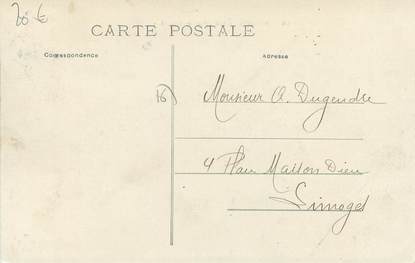 20 €
CARTE POSTALE
Correspondance
Adresse
16)
Monsieur A. Dugendre
4 Place Maison Dieu
Limoges